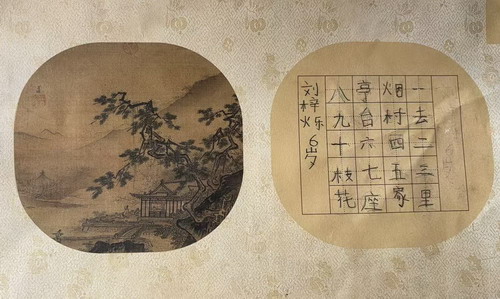 一去二三里
烟村四五家
亭台六七座
八九十枝花
刘梓烁 6岁